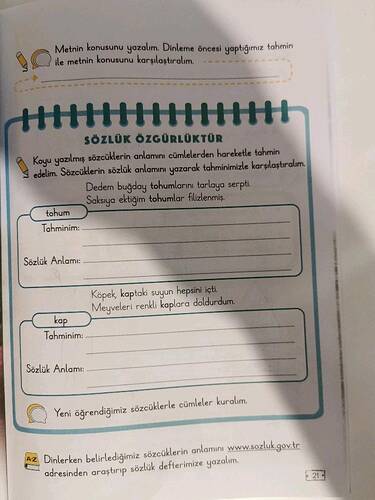 Metnin konusunu yazalım. Dinleme öncesi yaptığımız tahmin
ile metnin konusunu karşılaştıralım.
SÖZLÜK ÖZGÜRLÜKTÜR
Koyu yazılmış sözcüklerin anlamını cümlelerden hareketle tahmin
edelim. Sözcüklerin sözlük anlamını yazarak tahminimizle karşılaştıralım.
Dedem buğday tohumlarını tarlaya serpti.
Saksıya ektiğim tohumlar filizlenmiş.
tohum
Tahminim:
Sözlük Anlamı:
Köpek, kaptaki suyun hepsini içti.
Meyveleri renkli kaplara doldurdum.
kap
Tahminim:
Sözlük Anlamı:
Yeni öğrendiğimiz sözcüklerle cümleler kuralım.
A-Z
Dinlerken belirlediğimiz sözcüklerin anlamını www.sozluk.gov.tr
adresinden araştırıp sözlük defterimize yazalım.
21